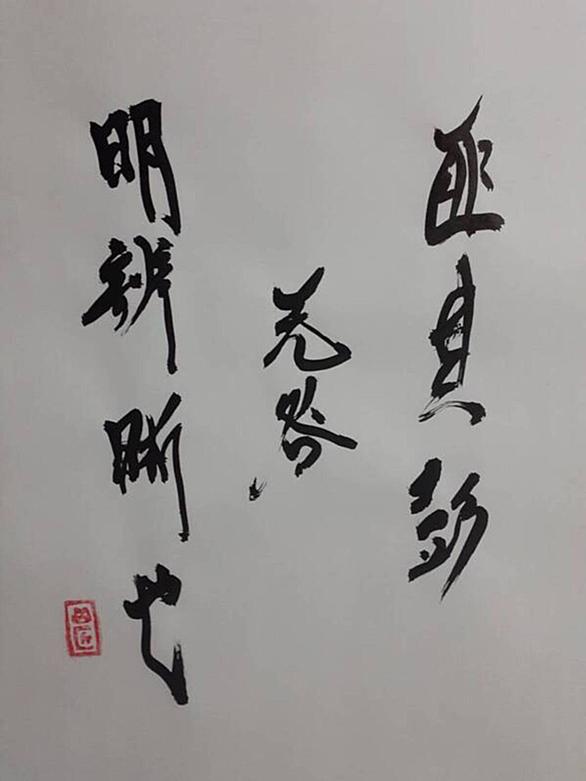 匪其彭
无咎
明辨晰也